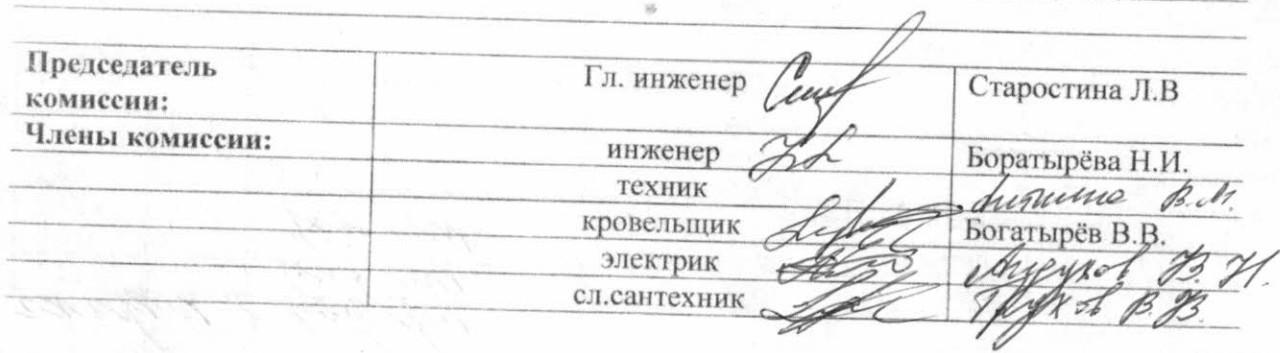 Председатель комиссии: Гл. инженер Старостина Л.В
Члены комиссии:
инженер Боратырёва Н.И.
техник В.М.
кровельщик Богатырёв В.В.
электрик В.Н.
сл.сантехник Трухов В.В.